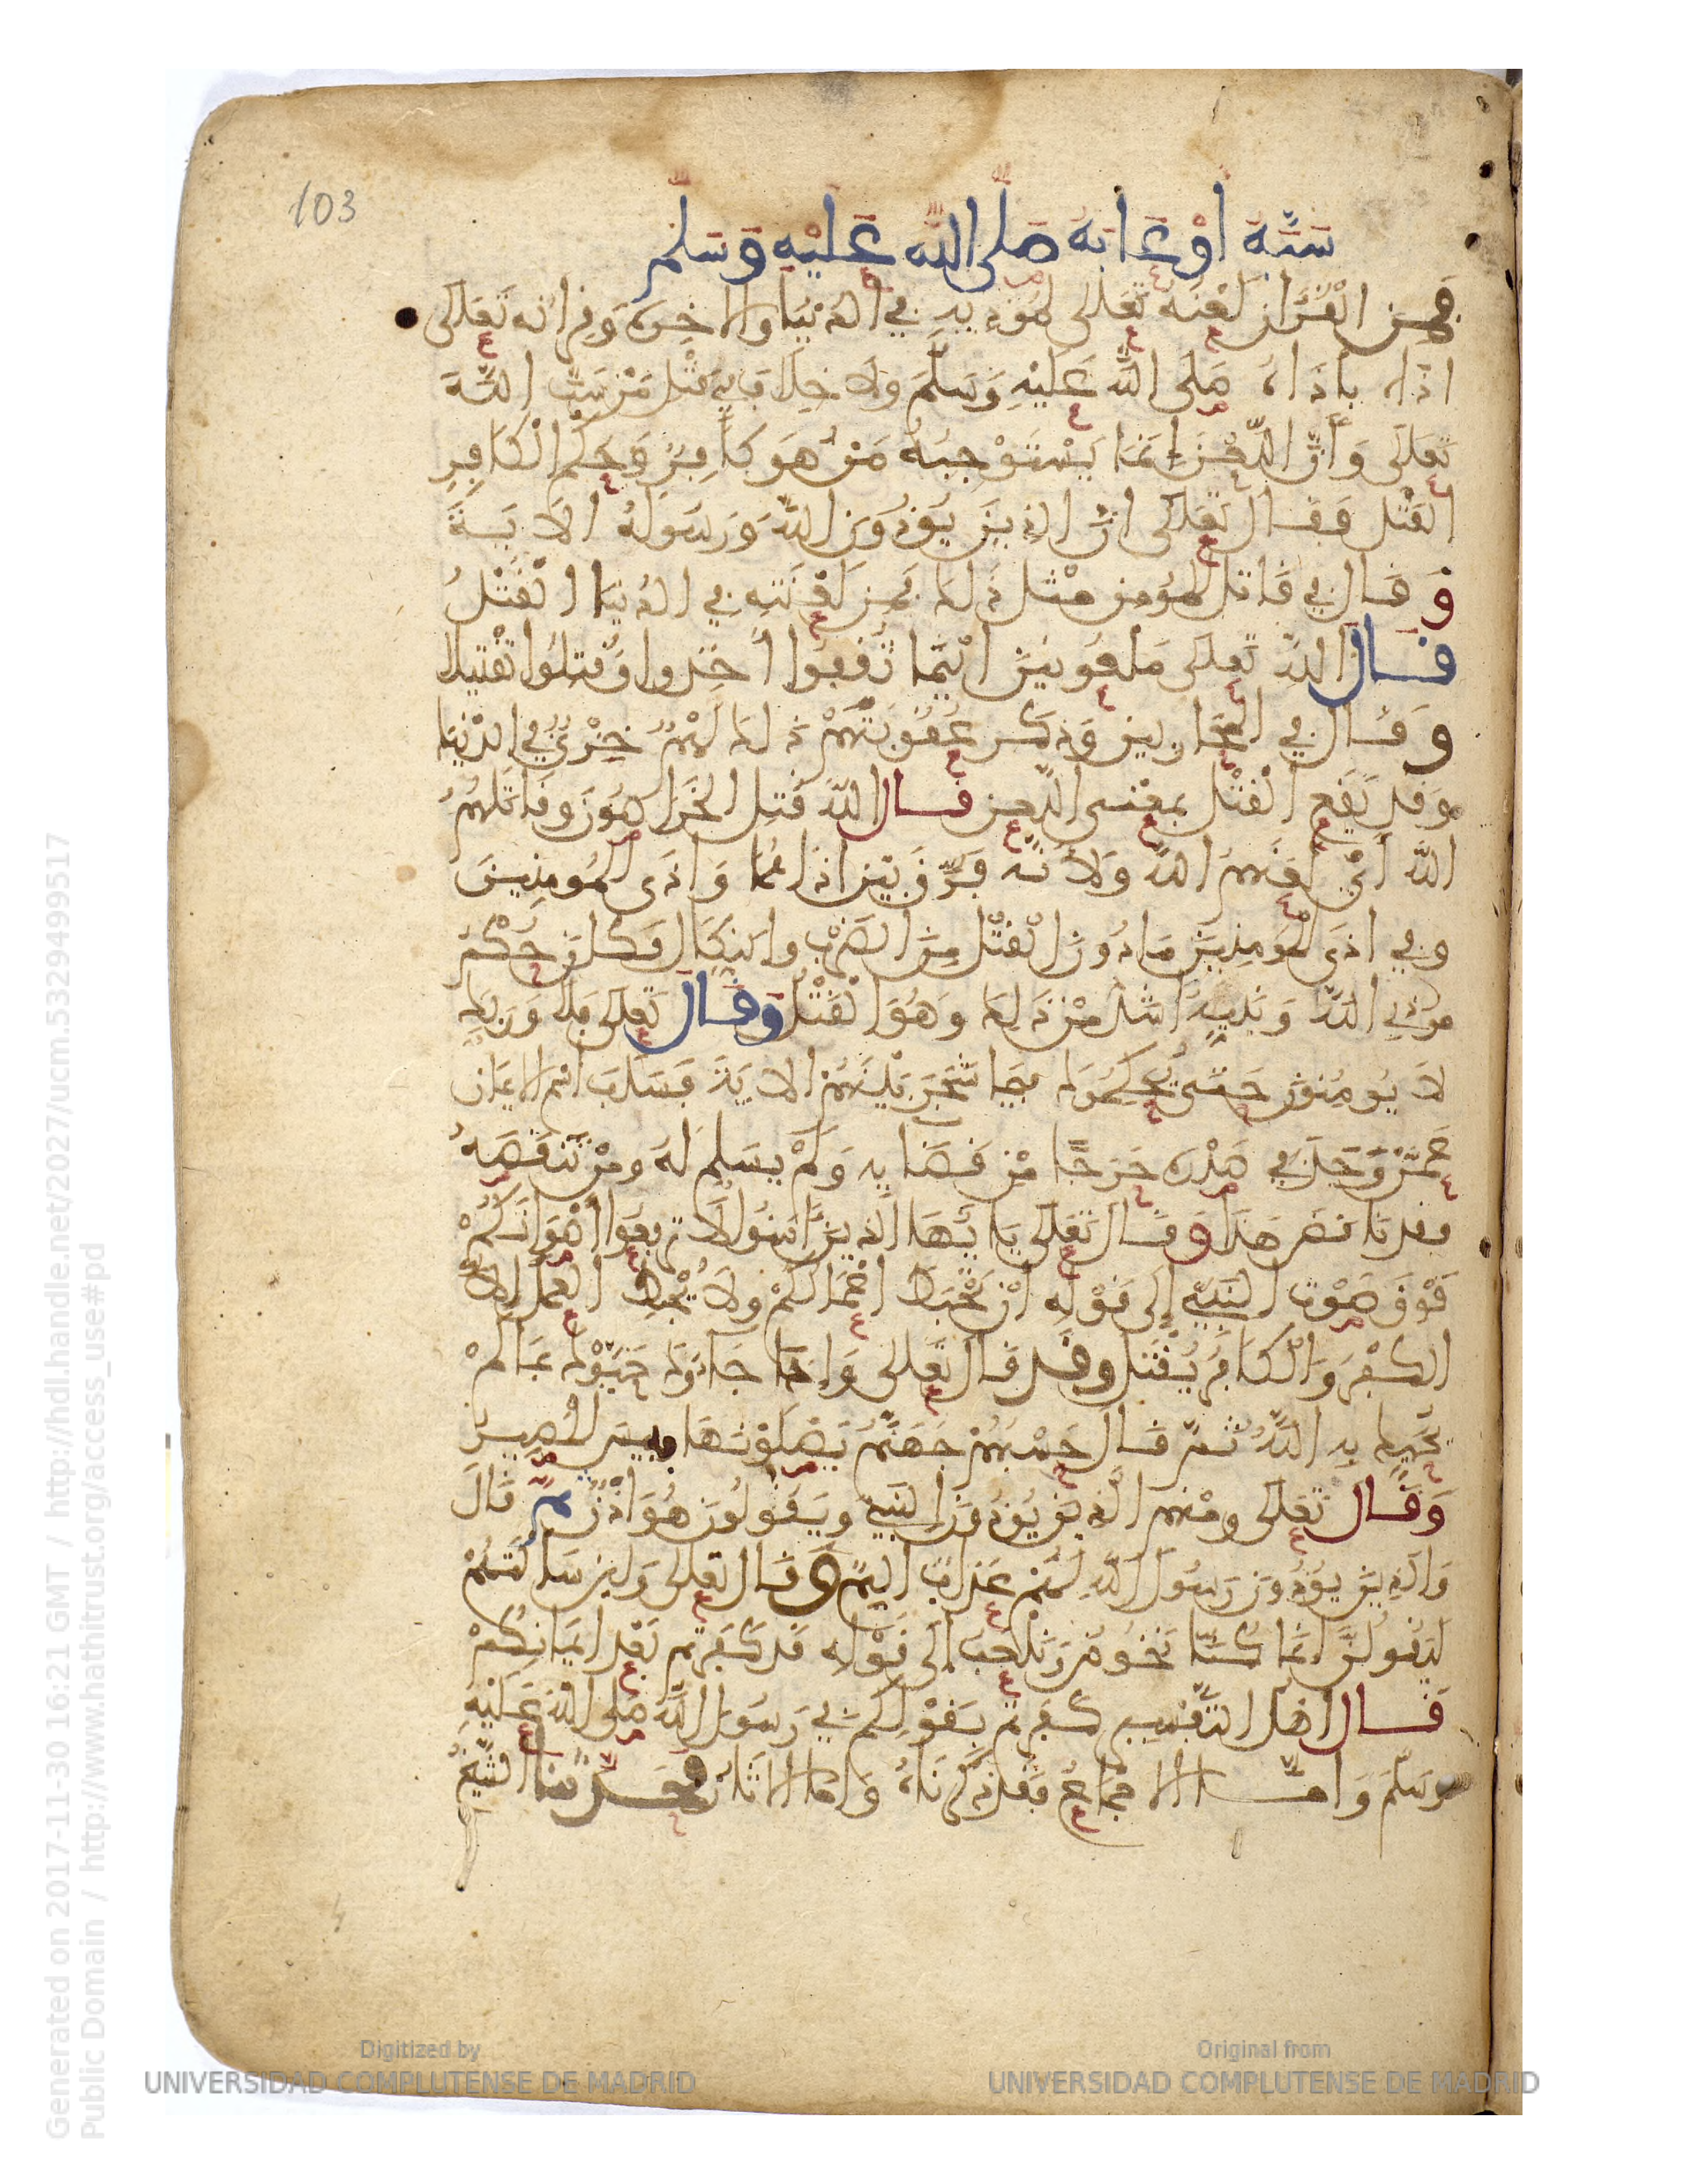 103
سَبَّهُ أَوْ عَابَهُ صَلى الله عَليْهِ وَسَلم
فمِنَ الْقُرْءَانِ لَعْنُهُ تَعَلَى لمُوذِيهِ في الدُنْيَا والاخِرَة وَقِرَانُه تَعَلَى
اذَاهُ بأذَاهُ صَلى اللَّه عَليْهِ وَسَلَّمَ وَلا خِلَافَ في قَتْل مَنْ سَبَّ اللَّهَ
تَعَلَى وَأَنَّ اللَّعْنَ إنمَا يَسْتَوْجِبُهُ مَنْ هُوَ كَافِرٌ وَحُكْمُ الْكَافِرِ
القَتْل فَقَال تَعَلَى انَّ الذِينَ يُوذُونَ اللَّهَ وَرَسُولَهُ الايَةَ
وَقَال في قَاتل المُؤمن مثْل ذَلكَ فمِن لَعْنَتِهِ في الدُنْيَا القَتْلُ
قَال اللَّه تَعَلى مَلعُونينَ ايْنَمَا ثُقِفُوا أُخِذوا وَقُتِلُوا تَقْتِيلا
وَقَال في المحَاربين وَذكَر عُقُوبَتَهُمْ ذَلكَ لَهُمْ خِزْيٌ في الدُنْيَا
وَقَد يَقَع الْقَتْل بمَعْنى اللَّعن قَال اللَّه قُتِل الخَرَاصُونَ وقَاتَلهُمُ
اللَّه أيْ لَعَنَهُمُ اللَّه وَلأنَّه فَرَّقَ بَيْنَ اذَاهُمَا وَاذَى المُومِنِينَ
وفي اذَى المُومِنِينَ مَا دُونَ الْقَتْل مِنَ الضَرْبِ والنكَال فكَانَ حُكْمُ
مُوذِي اللَّه وَنَبِيِّهِ أَشَدَّ مِنْ ذَلِكَ وَهُوَ الْقَتْلُ وَقَال تَعَلى فَلَا وَرَبِّكَ
لَا يُومِنُونَ حَتَّى يُحَكِّمُوكَ فِيمَا شَجَرَ بَيْنَهُمْ الايَةَ فسَلبَ اسْمَ الايمَان
عَمَّنْ وَجَدَ في صَدْرِه حَرَجًا مِنْ قَضَايِه وَلَمْ يسَلم لَهُ ومَنْ تَنَقَّصَهُ
فقد نَاقَضَ هَذَا وَقَال تَعَلَى يَايُّهَا الذِينَ ءَامَنُوا لَا تَرفَعُوا أَصْوَاتَكُمْ
فَوْقَ صَوْتِ النَبيِّ إِلَى قَوْلِهِ أَنْ تَحْبَطَ أَعْمَالكُمْ ولَا يُحْبِطُ العَمَلَ إِلا
الكُفْرُ وَالْكَافِرُ يُقْتَل وقَد قَال تَعَلى وَإِذَا جَاءُوكَ حَيَّوْكَ بمَا لمْ
يُحَيِّكَ بِهِ اللَّهُ ثُمَّ قَال حَسْبُهُمْ جَهَنَّمُ يَصْلَوْنَهَا فبِيسَ المَصِيرُ
وَقَال تَعَلى ومِنْهُمُ الذِينَ يُوذُونَ النَبيَّ ويَقُولُونَ هُوَ أُذُنٌ ثمَّ قَالَ
وَالذِينَ يُوذُونَ رَسُولَ اللَّهِ لَهُمْ عَذَابٌ أَلِيمٌ وَقَال تَعَلى وَلَئِن سَالتَهُمْ
لَيَقُولُنَّ إِنَّمَا كُنَّا نَخُوضُ وَنَلْعَبُ إِلَى قَوْلِهِ قَد كَفَرتم بَعْدَ إِيمَانِكُمْ
قَال أَهْل التَّفْسِير كَفَرْتُم بِقَوْلِكُمْ في رَسُول اللَّه صَلى اللَّه عَليْهِ
وسَلَّمَ وَامَّا الاجْمَاعُ فَقَد ذَكَرْنَاهُ وَامَّا الاثَارُ فحَدَّثنَا الشَّيْخُ
Generated on 2017-11-30 16:21 GMT / http://hdl.handle.net/2027/ucm.5329499517
Public Domain / http://www.hathitrust.org/access_use#pd
Digitized by
UNIVERSIDAD COMPLUTENSE DE MADRID
Original from
UNIVERSIDAD COMPLUTENSE DE MADRID